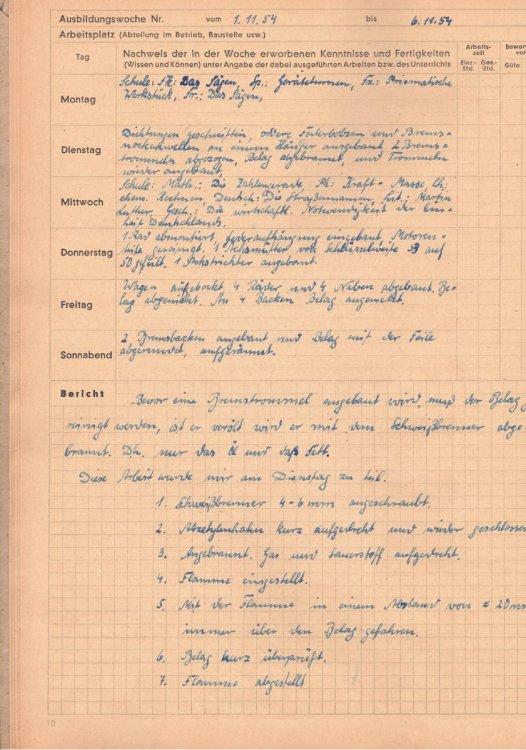 Ausbildungswoche Nr. vom 1.11.54 bis 6.11.54
Arbeitsplatz (Abteilung im Betrieb, Baustelle usw.)
Tag
Nachweis der in der Woche erworbenen Kenntnisse und Fertigkeiten
(Wissen und Können) unter Angabe der dabei ausgeführten Arbeiten bzw. des Unterrichts
Arbeits-
zeit
Einz.- Ges.-
Std. Std.
Güte
Montag
Schule: Das Sägen, Sp.: Geräteturnen, Fz.: Prismatische
Werkstück, Fr.: Das Sägen,
Dienstag
Dichtungen geschnitten, vordere Federbolzen und Brems=
nockenwellen an einem Hänger ausgebaut 2 Brems=
trommeln abgezogen, Belag abgebrannt, und Trommeln
wieder angebaut,
Mittwoch
Schule: Math.: Die Zahlengerade, Ph: Kraft - Masse, Ch:
chem. Rechnen, Deutsch: Die Straßennamen, Lit.: Martin
Luther, Gesch.: Die wirtschaftl. Notwendigkeit der Ein=
heit Deutschlands.
Donnerstag
1 Rad abmontiert, Federaufhängung eingebaut, Motoren-
teile gereinigt. 1 Sechsmutter von Schlüsselweite auf
50 gefeilt. 1 angebaut.
Freitag
Wagen aufgebockt 4 Räder und 4 Naben abgebaut. Be-
lag abgenietet. An 4 Backen Belag angenietet,
Sonnabend
2 Bremsbacken angebaut und Belag mit der Feile
abgerundet, aufgeräumt.
Bericht
Bevor eine Bremstrommel angebaut wird, muß der Belag
reinigt werden, ist er verölt wird er mit dem Schweißbrenner abge
brannt. Dh. nur das Öl und daß Fett.
Diese Arbeit wurde mir am Dienstag zu teil.
1. Schweißbrenner 4-6 mm angeschraubt.
2. Abzetylenhahn kurz aufgedreht und wieder geschlossen
3. Angebrannt. Gas und Sauerstoff aufgedreht.
4. Flamme eingestellt.
5. Mit der Flamme in einem Abstand von ≠ 20 mm
immer über den Belag gefahren.
6. Belag kurz überprüft.
7. Flamme abgestellt
10